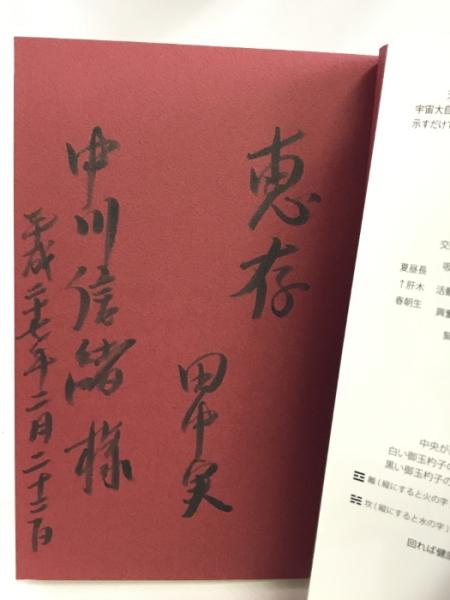 恵存
田中実
中川信緒様
平成二十七年二月二十二日
宇宙大自
示すだけで
交
夏昼長
↑肝木 活動
春朝生 興奮
中央が
白い御玉杓子の
黒い御玉杓子の
☲ 離(縦にすると火の字)
☵ 坎(縦にすると水の字)
回れば健康